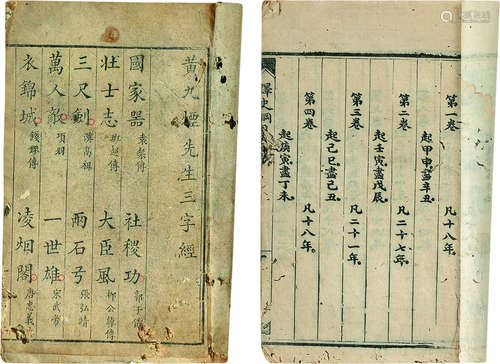 黃九煙先生三字經
國家器 袁粲傳 社稷功 郭子儀
壯士志 傳 大臣風 柳公綽傳
三尺劍 漢高祖 兩石弓 張弘靖
萬人敵 項羽 一世雄 宋武帝
衣錦城 錢鏐傳 凌烟閣 唐忠義
第一卷
起甲申盡辛丑 凡十八年
第二卷
起壬寅盡戊辰 凡二十七年
第三卷
起己巳盡己丑 凡二十一年
第四卷
起庚寅盡丁未 凡十八年